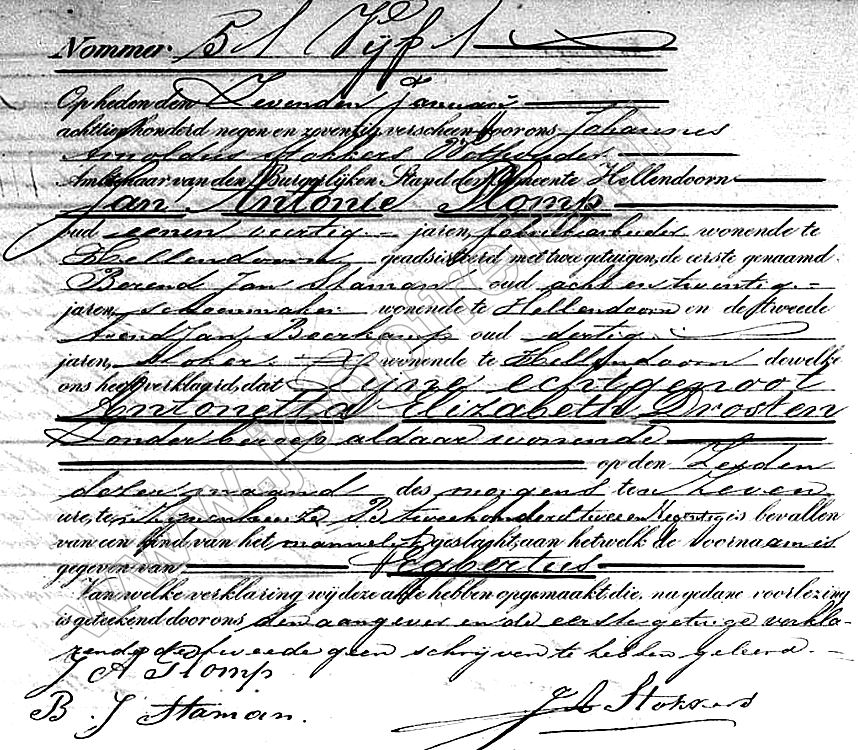 Nommer 5 Vijf
Op heden den Zevenden Januari
achttienhonderd negen en zeventig, verscheen voor ons Johannes
Arnoldus Stokkers Wethouder
Ambtenaar van den Burgerlijken Stand der Gemeente Hellendoorn
Jan Antonie Plomp
oud eenen veertig jaren, fabriekarbeider wonende te
Hellendoorn geadsisteerd met twee getuigen, de eerste genaamd
Berend Jan Staman oud acht en twentig
jaren, schoenmaker wonende te Hellendoorn en de tweede
Arend Jan Boerkamp oud dertig
jaren, stoker wonende te Hellendoorn dewelke
ons heeft verklaard, dat Zyne echtgenoot
Antonetta Elizabeth Drosten
Zonder beroep aldaar wonende
op den Zesden
dezer maand des morgens ten Zeven
ure, te zijnenhuize B tweehonderd twee en negentig is bevallen
van een kind van het mannelijk geslacht, aan hetwelk de voornaam is
gegeven van Egbertus
Van welke verklaring wij deze akte hebben opgemaakt, die, na gedane voorlezing
is geteekend door ons den aangever en de eerste getuige verkla-
rende de tweede geen schrijven te hebben geleerd.
J A Plomp
B. J Staman.
J A Stokkers